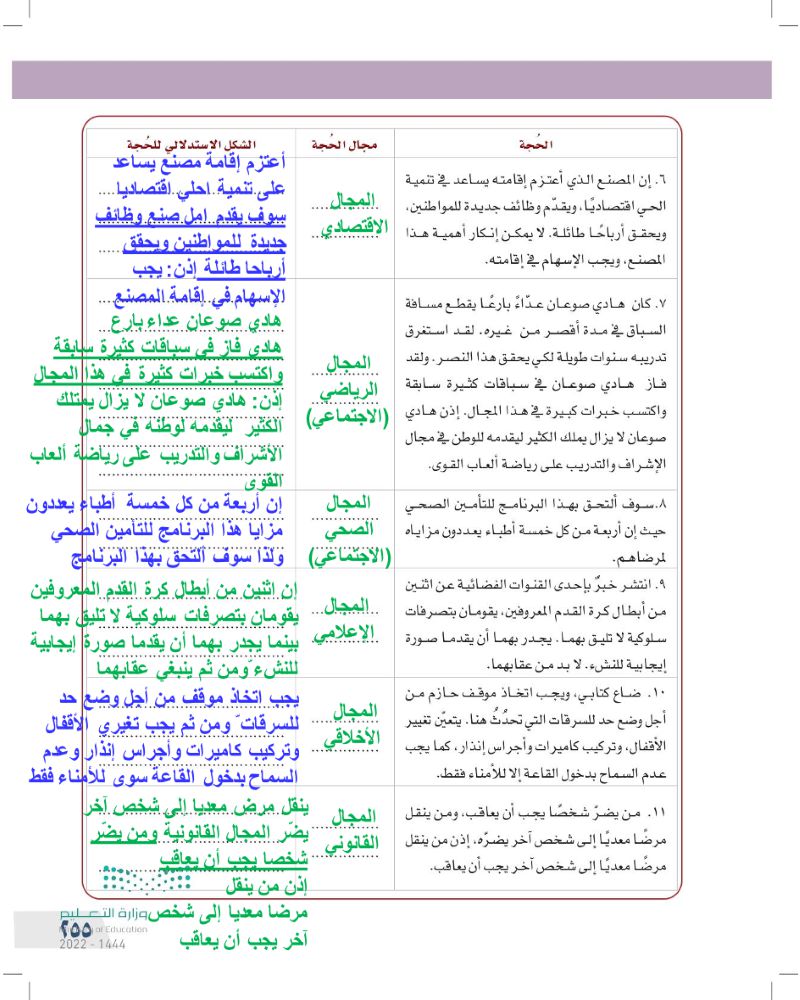 الحُجة
مجال الحُجة
الشكل الاستدلالي للحُجة
٦. إن المصنع الذي أعتزم إقامته يساعد في تنمية
الحي اقتصاديًا، ويقدّم وظائف جديدة للمواطنين،
ويحقق أرباحًا طائلة. لا يمكن إنكار أهمية هذا
المصنع، ويجب الإسهام في إقامته.
المجال
الاقتصادي
أعتزم إقامة مصنع يساعد
على تنمية احلي اقتصاديا
سوف يقدم امل صنع وظائف
جديدة للمواطنين ويحقق
أرباحا طائلة إذن: يجب
الإسهام في إقامة المصنع
٧. كان هادي صوعان عدّاءً بارعًا يقطع مسافة
السباق في مدة أقصر من غيره. لقد استغرق
تدريبه سنوات طويلة لكي يحقق هذا النصر. ولقد
فاز هادي صوعان في سباقات كثيرة سابقة
واكتسب خبرات كبيرة في هذا المجال. إذن هادي
صوعان لا يزال يملك الكثير ليقدمه للوطن في مجال
الإشراف والتدريب على رياضة ألعاب القوى.
المجال
الرياضي
(الاجتماعي)
هادي صوعان عداء بارع
هادي فاز في سباقات كثيرة سابقة
واكتسب خبرات كثيرة في هذا المجال
إذن: هادي صوعان لا يزال يمتلك
الكثير ليقدمه لوطنه في جمال
الأشراف والتدريب على رياضة ألعاب
القوى
٨. سوف ألتحق بهذا البرنامج للتأمين الصحي
حيث إن أربعة من كل خمسة أطباء يعددون مزاياه
لمرضاهم.
المجال
الصحي
(الاجتماعي)
إن أربعة من كل خمسة أطباء يعددون
مزايا هذا البرنامج للتأمين الصحي
ولذا سوف ألتحق بهذا البرنامج
٩. انتشر خبرٌ بإحدى القنوات الفضائية عن اثنين
من أبطال كرة القدم المعروفين، يقومان بتصرفات
سلوكية لا تليق بهما. يجدر بهما أن يقدما صورة
إيجابية للنشء. لا بد من عقابهما.
المجال
الإعلامي
إن اثنين من أبطال كرة القدم المعروفين
يقومان بتصرفات سلوكية لا تليق بهما
بينما يجدر بهما أن يقدما صورة إيجابية
للنشء ومن ثم ينبغي عقابهما
١٠. ضاع كتابي، ويجب اتخاذ موقف حازم من
أجل وضع حد للسرقات التي تحدُثُ هنا. يتعيّن تغيير
الأقفال، وتركيب كاميرات وأجراس إنذار، كما يجب
عدم السماح بدخول القاعة إلا للأمناء فقط.
المجال
الأخلاقي
يجب اتخاذ موقف من أجل وضع حد
للسرقات ومن ثم يجب تغيري الأقفال
وتركيب كاميرات وأجراس إنذار وعدم
السماح بدخول القاعة سوى للأمناء فقط
١١. من يضرّ شخصًا يجب أن يعاقب، ومن ينقل
مرضًا معديًا إلى شخص آخر يضرّه، إذن من ينقل
مرضًا معديًا إلى شخص آخر يجب أن يعاقب.
المجال
القانوني
ينقل مرض معديا إلى شخص آخر
يضّر المجال القانونية ومن يضّر
شخصا يجب أن يعاقب
إذن من ينقل
مرضا معديا إلى شخص
آخر يجب أن يعاقب
وزارة التعليم
Ministry of Education
2022 - 1444
٢٥٥